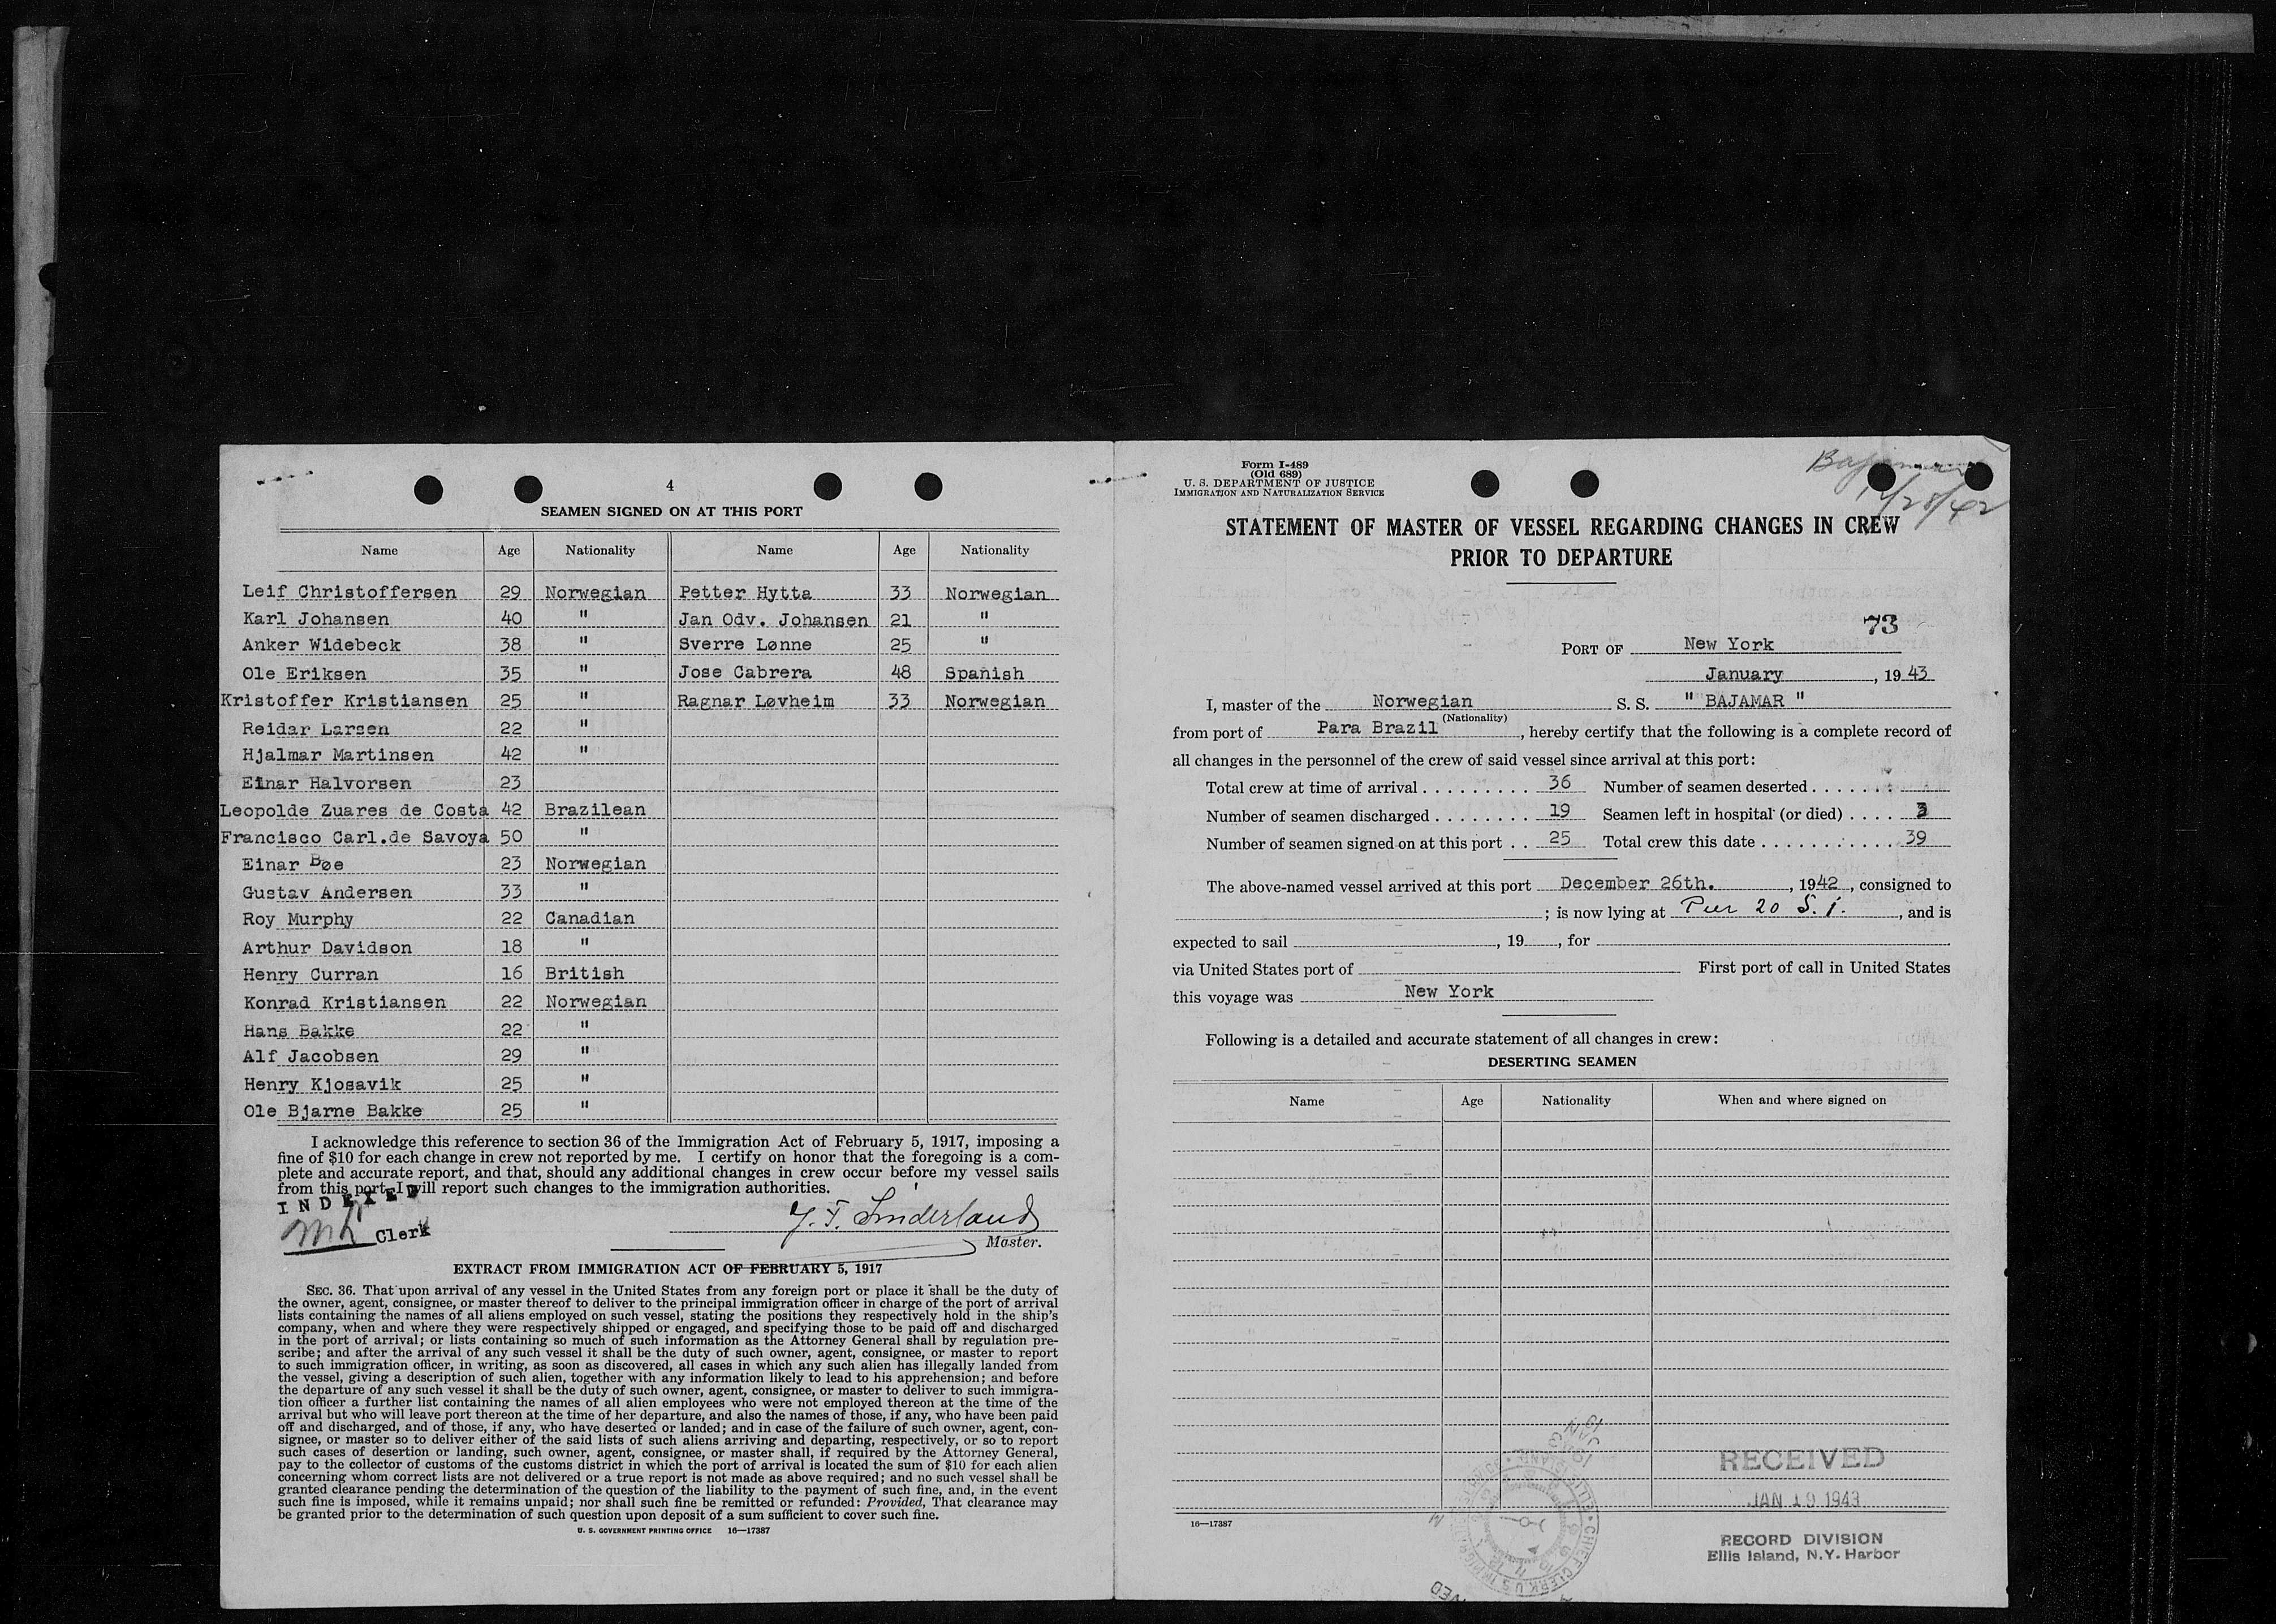 4
SEAMEN SIGNED ON AT THIS PORT
Name Age Nationality Name Age Nationality
Leif Christoffersen 29 Norwegian Petter Hytta 33 Norwegian
Karl Johansen 40 " Jan Odv. Johansen 21 "
Anker Widebeck 38 " Sverre Lønne 25 "
Ole Eriksen 35 " Jose Cabrera 48 Spanish
Kristoffer Kristiansen 25 " Ragnar Løvheim 33 Norwegian
Reidar Larsen 22 "
Hjalmar Martinsen 42 "
Einar Halvorsen 23
Leopolde Zuares de Costa 42 Brazilean
Francisco Carl.de Savoya 50 "
Einar Bøe 23 Norwegian
Gustav Andersen 33 "
Roy Murphy 22 Canadian
Arthur Davidson 18 "
Henry Curran 16 British
Konrad Kristiansen 22 Norwegian
Hans Bakke 22 "
Alf Jacobsen 29 "
Henry Kjosavik 25 "
Ole Bjarne Bakke 25 "
I acknowledge this reference to section 36 of the Immigration Act of February 5, 1917, imposing a
fine of $10 for each change in crew not reported by me. I certify on honor that the foregoing is a com-
plete and accurate report, and that, should any additional changes in crew occur before my vessel sails
from this port, I will report such changes to the immigration authorities.
INDEXED
Clerk
Master.
EXTRACT FROM IMMIGRATION ACT OF FEBRUARY 5, 1917
SEC. 36. That upon arrival of any vessel in the United States from any foreign port or place it shall be the duty of
the owner, agent, consignee, or master thereof to deliver to the principal immigration officer in charge of the port of arrival
lists containing the names of all aliens employed on such vessel, stating the positions they respectively hold in the ship's
company, when and where they were respectively shipped or engaged, and specifying those to be paid off and discharged
in the port of arrival; or lists containing so much of such information as the Attorney General shall by regulation pre-
scribe; and after the arrival of any such vessel it shall be the duty of such owner, agent, consignee, or master to report
to such immigration officer, in writing, as soon as discovered, all cases in which any such alien has illegally landed from
the vessel, giving a description of such alien, together with any information likely to lead to his apprehension; and before
the departure of any such vessel it shall be the duty of such owner, agent, consignee, or master to deliver to such immigra-
tion officer a further list containing the names of all alien employees who were not employed thereon at the time of the
arrival but who will leave port thereon at the time of her departure, and also the names of those, if any, who have been paid
off and discharged, and of those, if any, who have deserted or landed; and in case of the failure of such owner, agent, con-
signee, or master so to deliver either of the said lists of such aliens arriving and departing, respectively, or so to report
such cases of desertion or landing, such owner, agent, consignee, or master shall, if required by the Attorney General,
pay to the collector of customs of the customs district in which the port of arrival is located the sum of $10 for each alien
concerning whom correct lists are not delivered or a true report is not made as above required; and no such vessel shall be
granted clearance pending the determination of the question of the liability to the payment of such fine, and, in the event
such fine is imposed, while it remains unpaid; nor shall such fine be remitted or refunded: Provided, That clearance may
be granted prior to the determination of such question upon deposit of a sum sufficient to cover such fine.
U. S. GOVERNMENT PRINTING OFFICE 16—17387
Form I-489
(Old 689)
U. S. DEPARTMENT OF JUSTICE
IMMIGRATION AND NATURALIZATION SERVICE
Bajamar
12/28/42
STATEMENT OF MASTER OF VESSEL REGARDING CHANGES IN CREW
PRIOR TO DEPARTURE
73
PORT OF New York
January , 1943
I, master of the Norwegian S. S. " BAJAMAR "
(Nationality)
from port of Para Brazil , hereby certify that the following is a complete record of
all changes in the personnel of the crew of said vessel since arrival at this port:
Total crew at time of arrival . . . . . . . . . 36 Number of seamen deserted . . . . . . .
Number of seamen discharged . . . . . . . . 19 Seamen left in hospital (or died) . . . . 3
Number of seamen signed on at this port . . 25 Total crew this date . . . . . . . . . . . . 39
The above-named vessel arrived at this port December 26th. , 1942 , consigned to
; is now lying at Pier 20 S. I. , and is
expected to sail , 19 , for
via United States port of First port of call in United States
this voyage was New York
Following is a detailed and accurate statement of all changes in crew:
DESERTING SEAMEN
Name Age Nationality When and where signed on
RECEIVED
JAN 19 1943
RECORD DIVISION
Ellis Island, N.Y. Harbor
16—17387